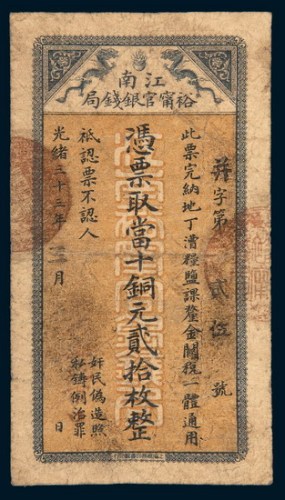 江南
裕甯官銀錢局
字第 貳伍 號
此票完納地丁漕糧鹽課釐金關稅一體通用
憑票取當十銅元貳拾枚整
祇認票不認人
光緒三十三年 月 日
奸民偽造照
私鑄例治罪